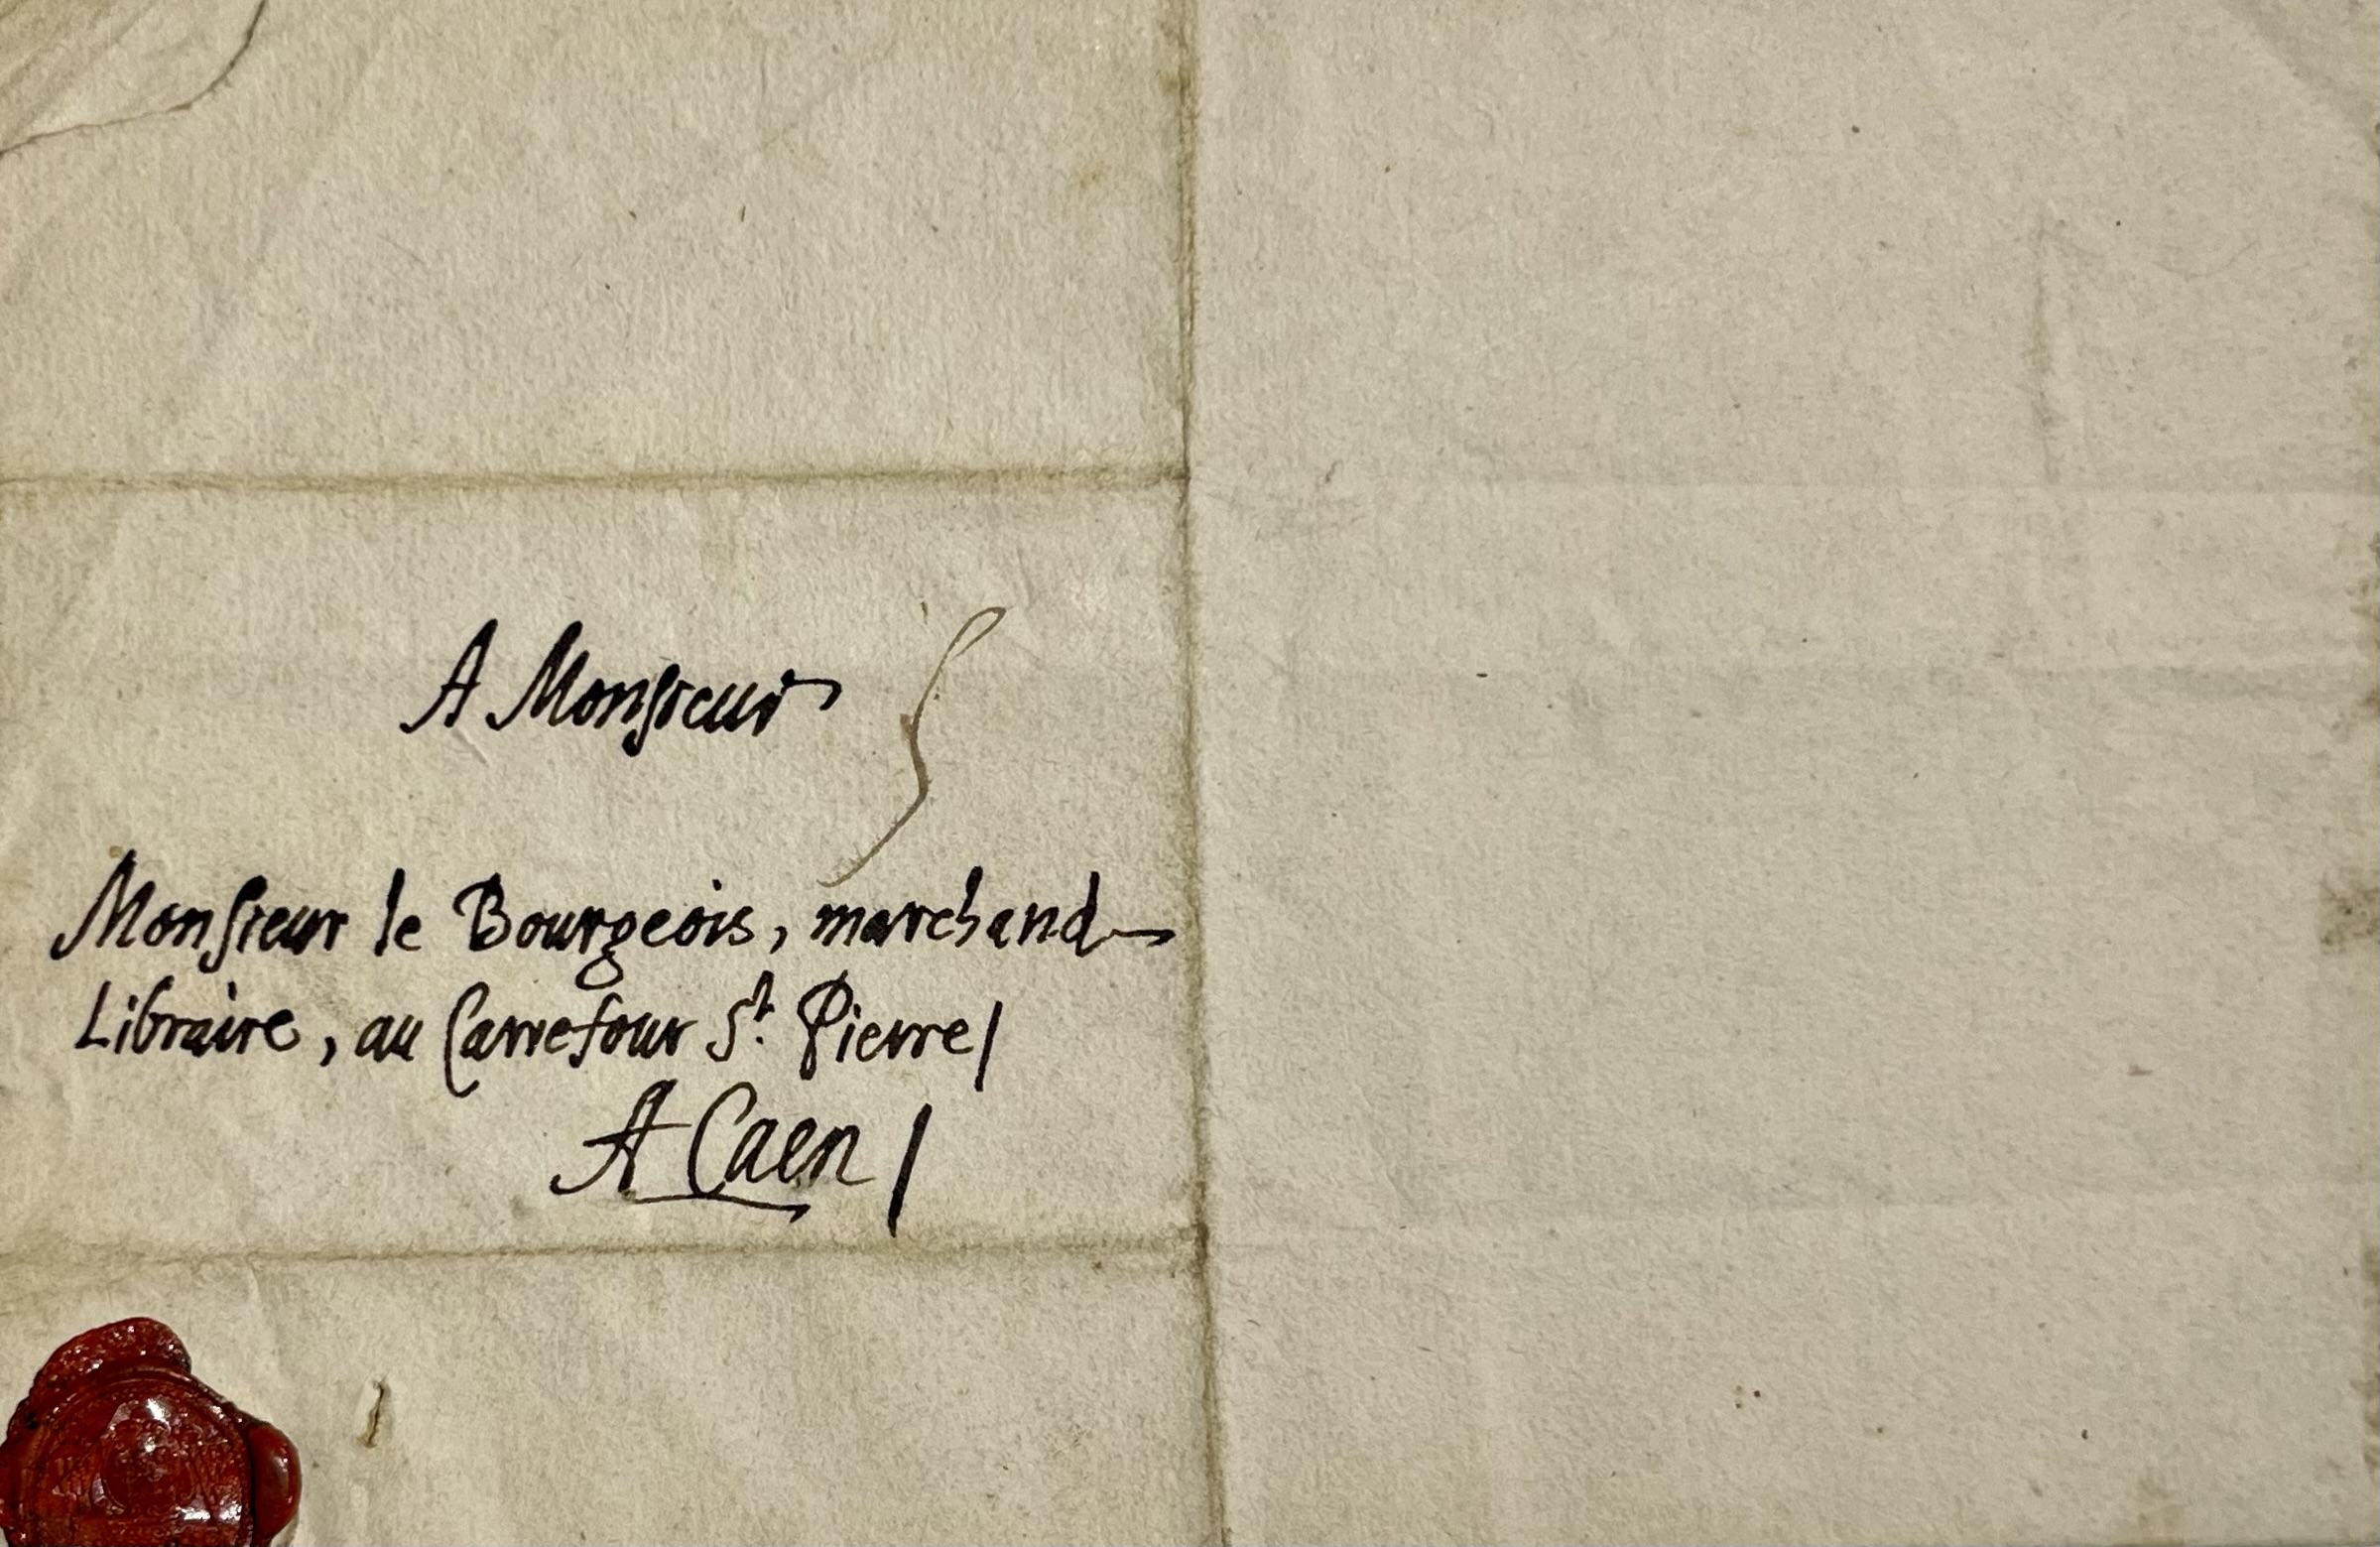 A Monsieur
Monsieur le Bourgeois, marchand
Libraire, au Carrefour St. Pierre/
A Caen/